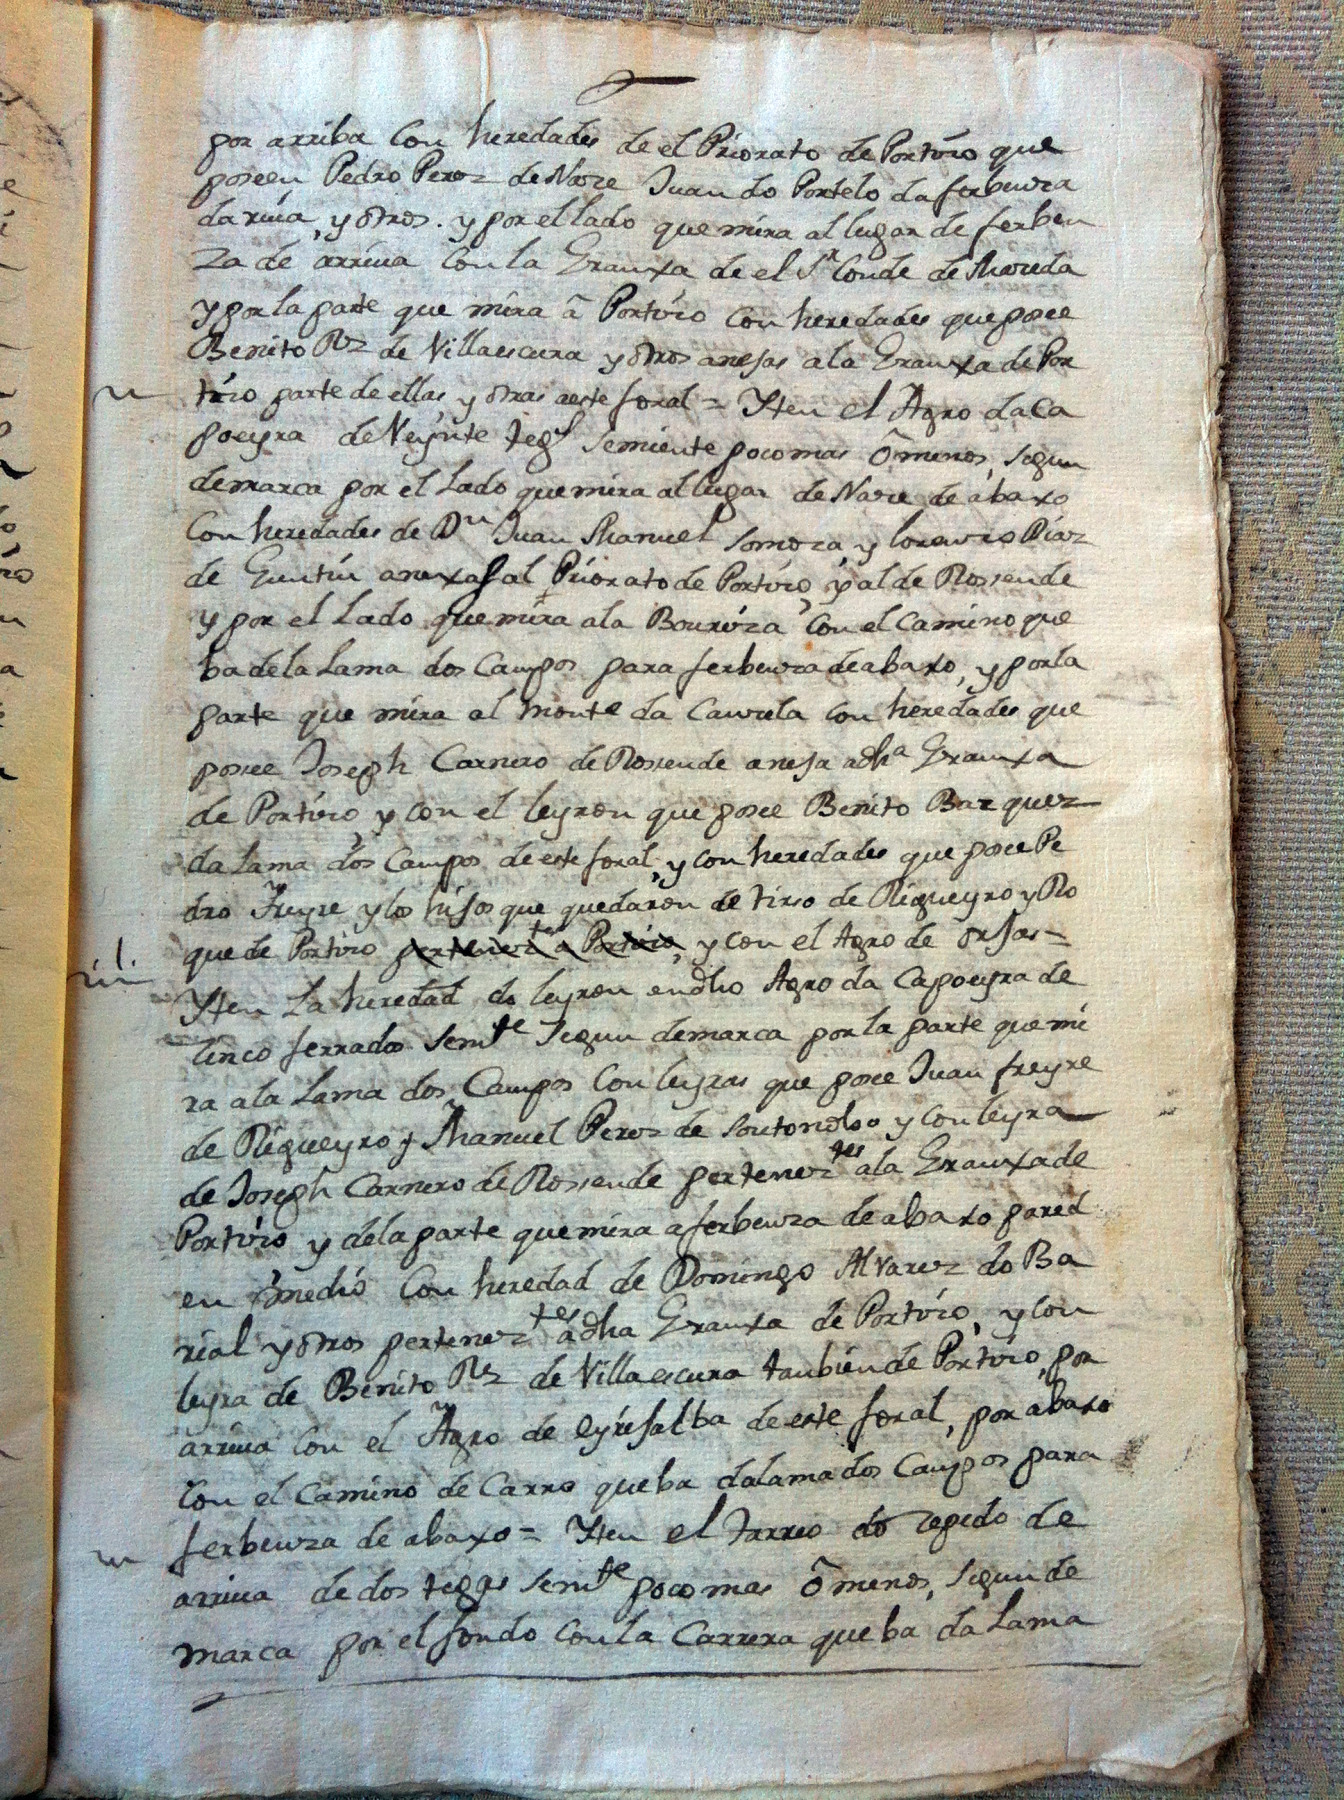 por arriba Con heredades de el Priorato de Portúro que
poseen Pedro Perez de Nare Juan do Portelo da ferbenza
da riua, y otros. y por el lado que mira al lugar de ferben
za de arriua Con la Granxa de el Sr Conde de Maceda
y por la parte que mira â Portúro Con heredades que posee
Benito Rz de Villaescura y otros anejas a la Granxa de Por
túro parte de ellas y otras a este foral = Yten el Agro da Ca
poeyra de Veynte tegs semiente poco mas ô menos, segun
demarca por el Lado que mira al lugar de Nare de abaxo
Con heredades de Dn Juan Manuel Somoza, y Lorenzo Diaz
de Guntin anexas al Priorato de Portúro, y al de Rosende
y por el Lado que mira a la Con el Camino que
ba de la Lama dos Campos para ferbenza de abaxo, y por la
parte que mira al monte da Con heredades que
posee Joseph Carnero de Rosende aneja a dha Granxa
de Portúro, y con el leyron que posee Benito Bazquez
da Lama dos Campos de este foral, y con heredades que posee Pe
dro Freyre y los hijos que quedaron de tirso de Rigueyro y Ro
que de Portúro pertenezte a Portúro, y con el Agro de orjas =
Yten La heredad do leyron en dho Agro da Capoeyra de
Cinco ferrados semte segun demarca por la parte que mi
ra a la Lama dos Campos Con leyras que posee Juan freyre
de Rigueyro y Manuel Perez de y con leyra
de Joseph Carnero de Rosende perteneztes a la Granxa de
Portúro y de la parte que mira a ferbenza de abaxo pared
en medio Con heredad de Domingo Alvarez do Ba
rial y otros perteneztes a dha Granxa de Portúro, y con
leyra de Benito Rz de Villaescura tanbien de Portúro, por
arriua Con el Agro de de este foral, por abaxo
Con el Camino de Carro que ba da lama dos Campos para
ferbenza de abaxo = Yten el tarreo do cepedo de
arriua de dos tegas semte poco mas ô menos, segun de
marca por el fondo Con la Carrera que ba da Lama